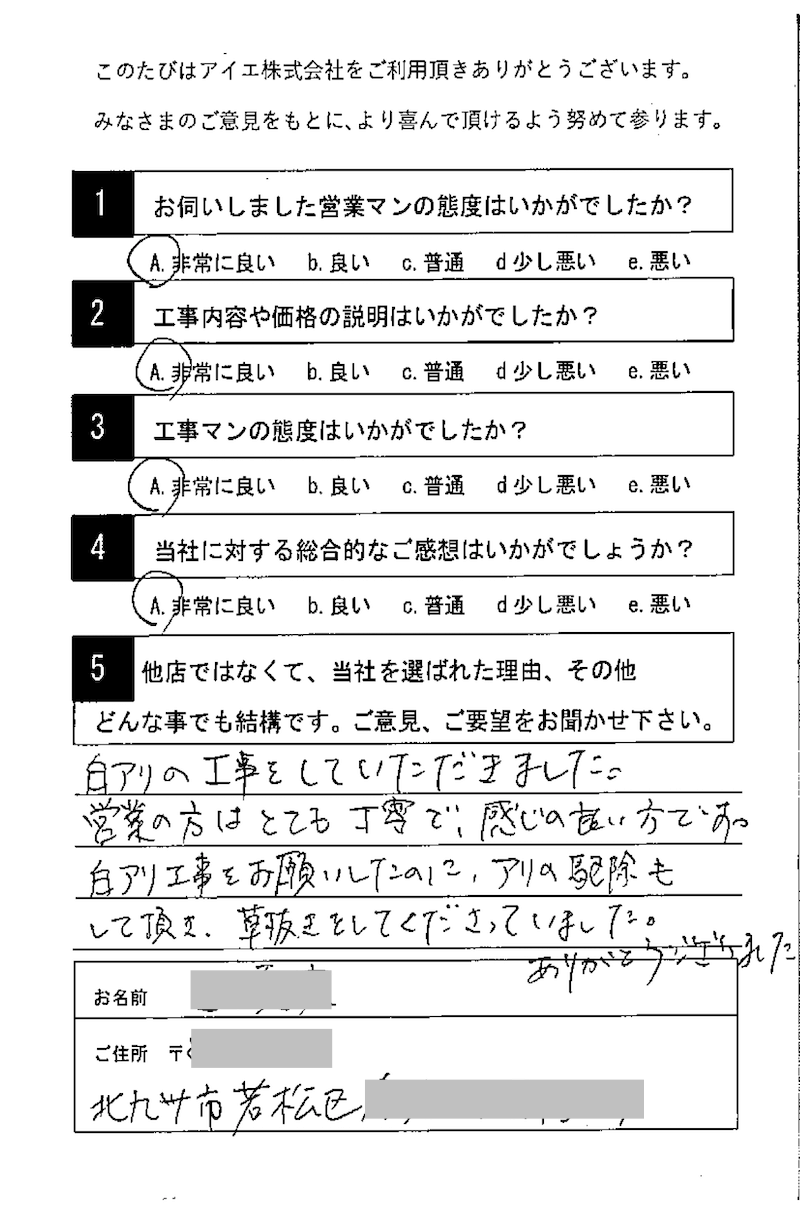 このたびはアイエ株式会社をご利用頂きありがとうございます。
みなさまのご意見をもとに、より喜んで頂けるよう努めて参ります。
1 お伺いしました営業マンの態度はいかがでしたか？
A. 非常に良い b. 良い c. 普通 d 少し悪い e. 悪い
2 工事内容や価格の説明はいかがでしたか？
A. 非常に良い b. 良い c. 普通 d 少し悪い e. 悪い
3 工事マンの態度はいかがでしたか？
A. 非常に良い b. 良い c. 普通 d 少し悪い e. 悪い
4 当社に対する総合的なご感想はいかがでしょうか？
A. 非常に良い b. 良い c. 普通 d 少し悪い e. 悪い
5 他店ではなくて、当社を選ばれた理由、その他
どんな事でも結構です。ご意見、ご要望をお聞かせ下さい。
白アリの工事をしていただきました。
営業の方はとても丁寧で、感じの良い方です。
白アリ工事をお願いしたのに、アリの駆除も
して頂き、草抜きをしてくださっていました。
ありがとうございました
お名前
ご住所 〒
北九州市若松区